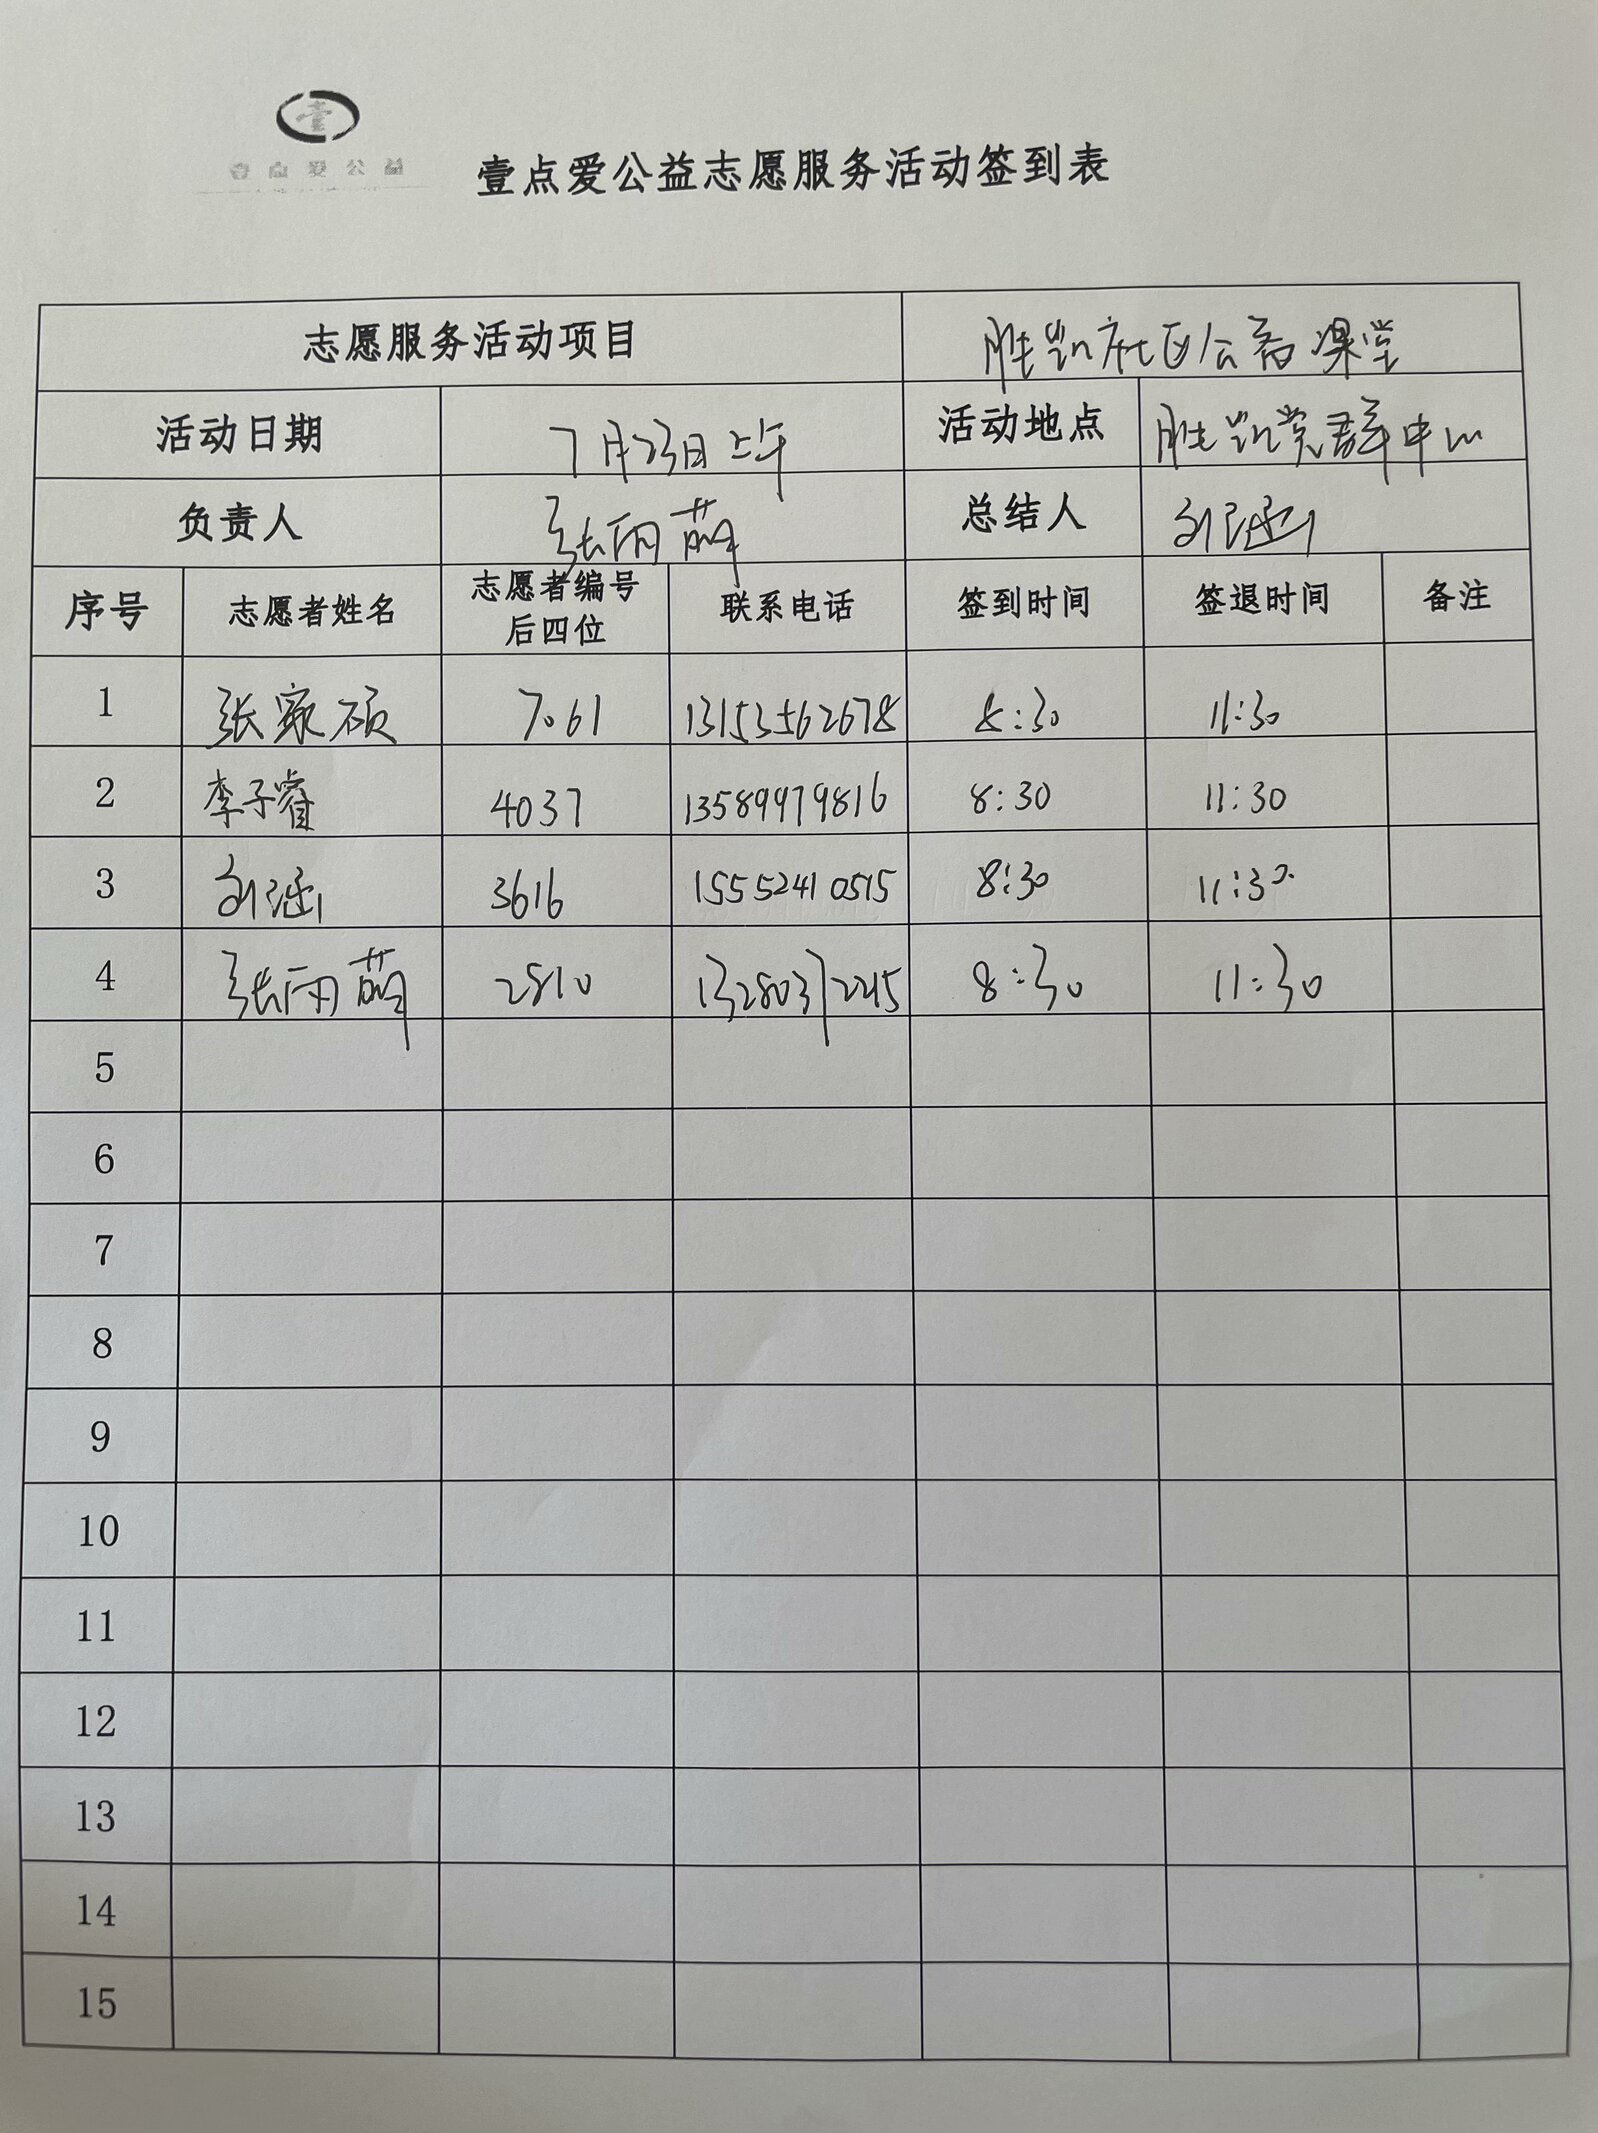 壹
壹点爱公益
壹点爱公益志愿服务活动签到表
志愿服务活动项目 胜凯社区公益课堂
活动日期 7月23日上午 活动地点 胜凯党群中心
负责人 张雨萌 总结人 刘涵
序号 志愿者姓名 志愿者编号 联系电话 签到时间 签退时间 备注
后四位
1 张家硕 7061 13153562678 8:30 11:30
2 李子睿 4037 13589979816 8:30 11:30
3 刘涵 3616 15552410515 8:30 11:30
4 张雨萌 2810 13280372215 8:30 11:30
5
6
7
8
9
10
11
12
13
14
15